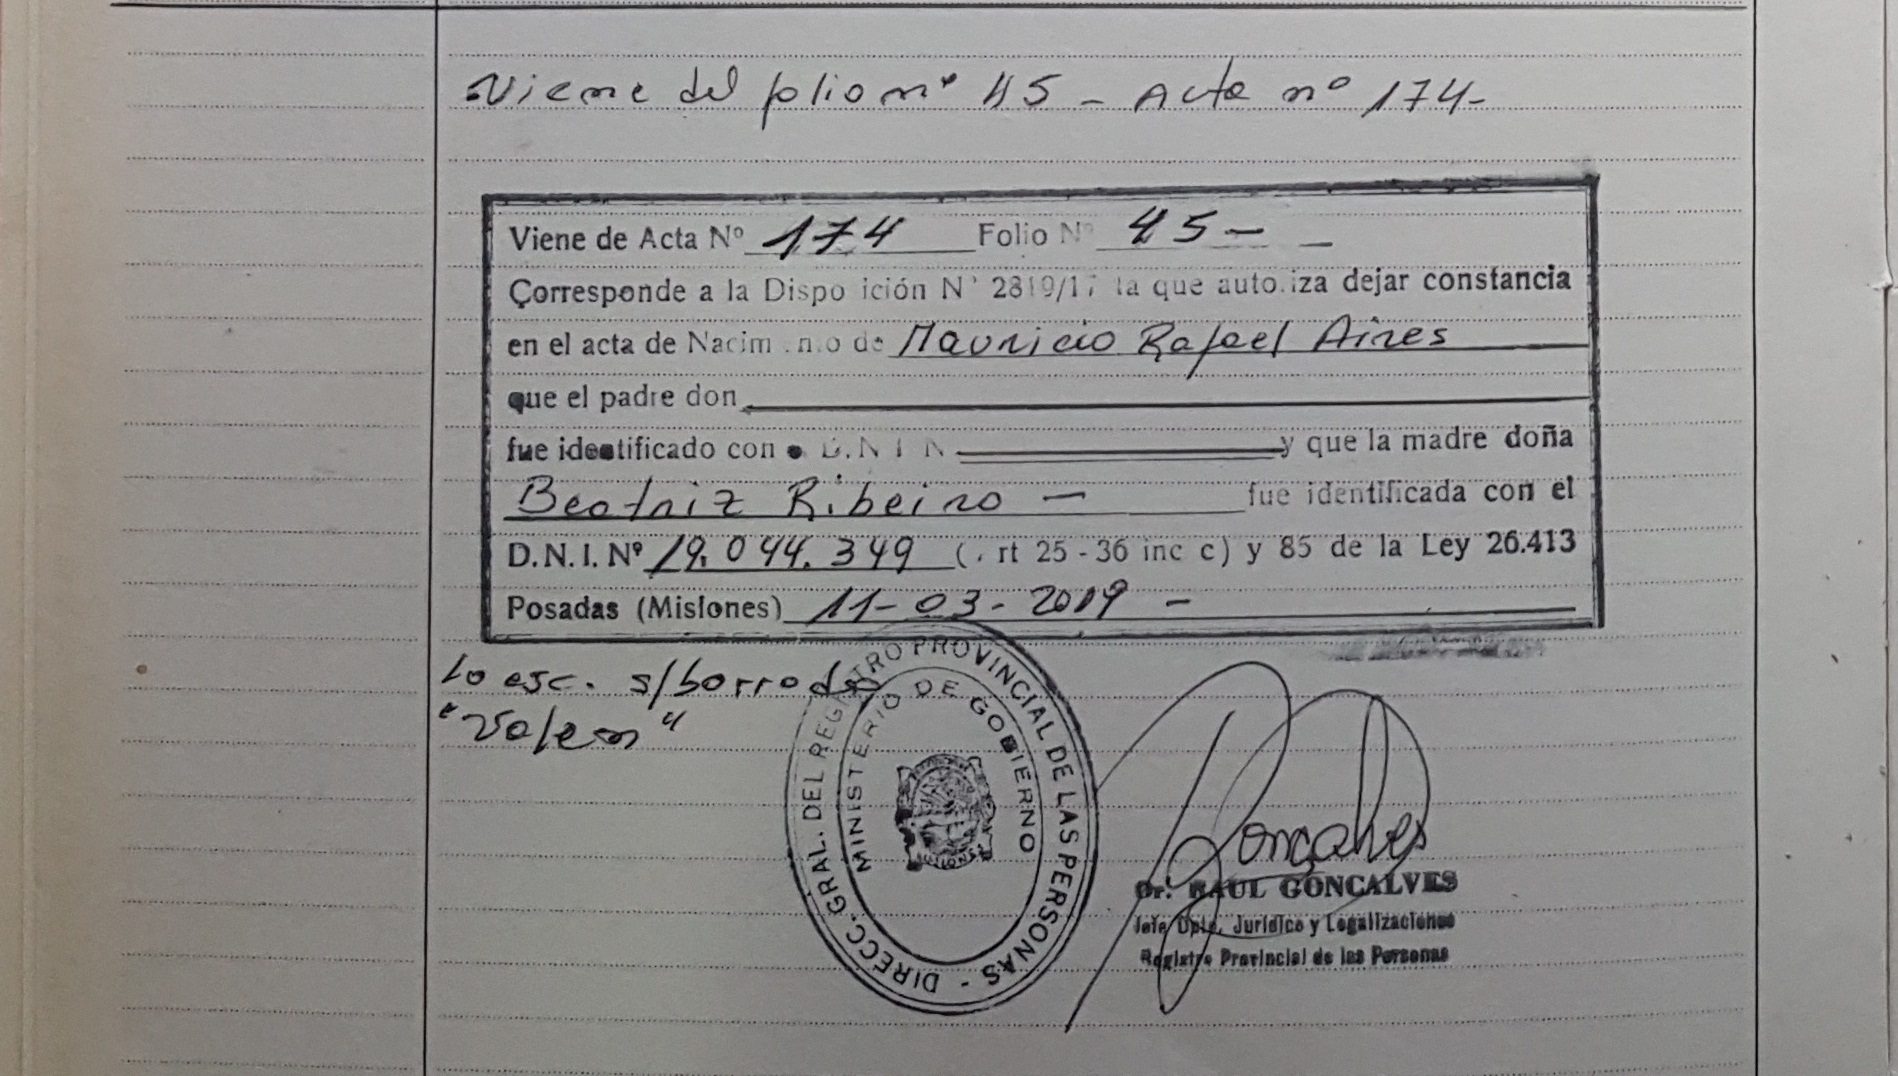 Viene del folio nº 45 - Acta nº 174-
Viene de Acta Nº 174 Folio Nº 45 - -
Corresponde a la Dispo ición Nº 2819/17 la que auto.iza dejar constancia
en el acta de Nacim .n.o de Mauricio Rafael Aires
que el padre don
fue identificado con D.N I N y que la madre doña
Beatriz Ribeiro - fue identificada con el
D.N.I. Nº 19.044.349 (. rt 25 - 36 inc c) y 85 de la Ley 26.413
Posadas (Misiones) 11-03-2019 -
Lo esc. s/borrado
"Valen"
DIRECC. GRAL. DEL REGISTRO PROVINCIAL DE LAS PERSONAS -
MINISTERIO DE GOBIERNO
MISIONES
Goncalves
Dr. RAUL GONCALVES
Jefe Dpto. Jurídico y Legalizaciones
Registro Provincial de las Personas